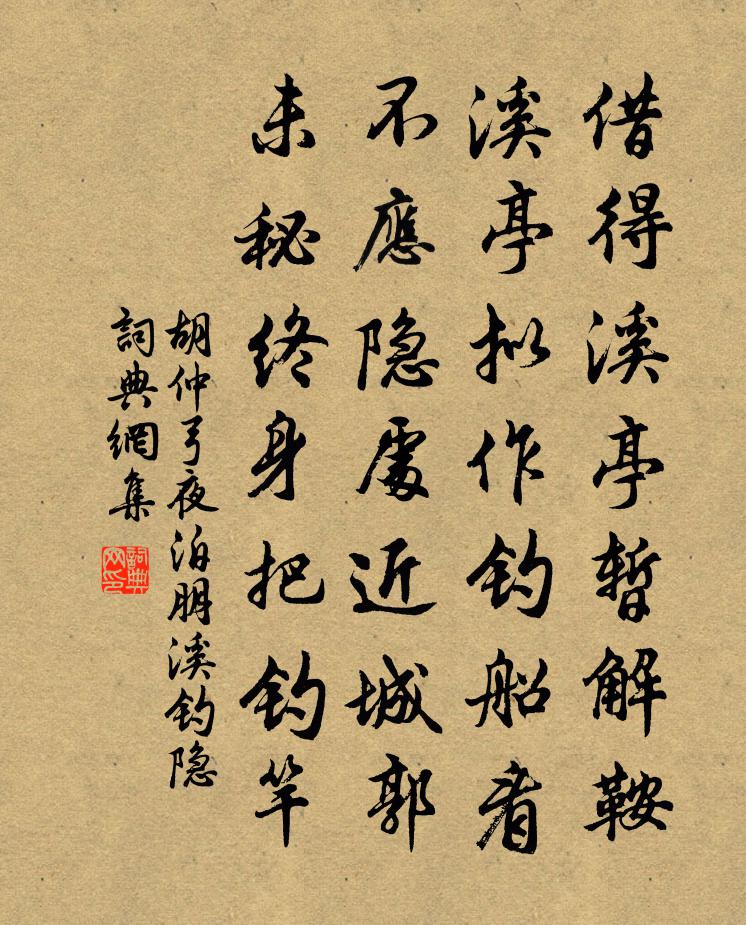 借得溪亭暫解鞍
溪亭拟作钓船看
不應隐處近城郭
未秘终身把钓竿
胡仲弓夜泊朋溪钓隐
詞典網集
詞典网印